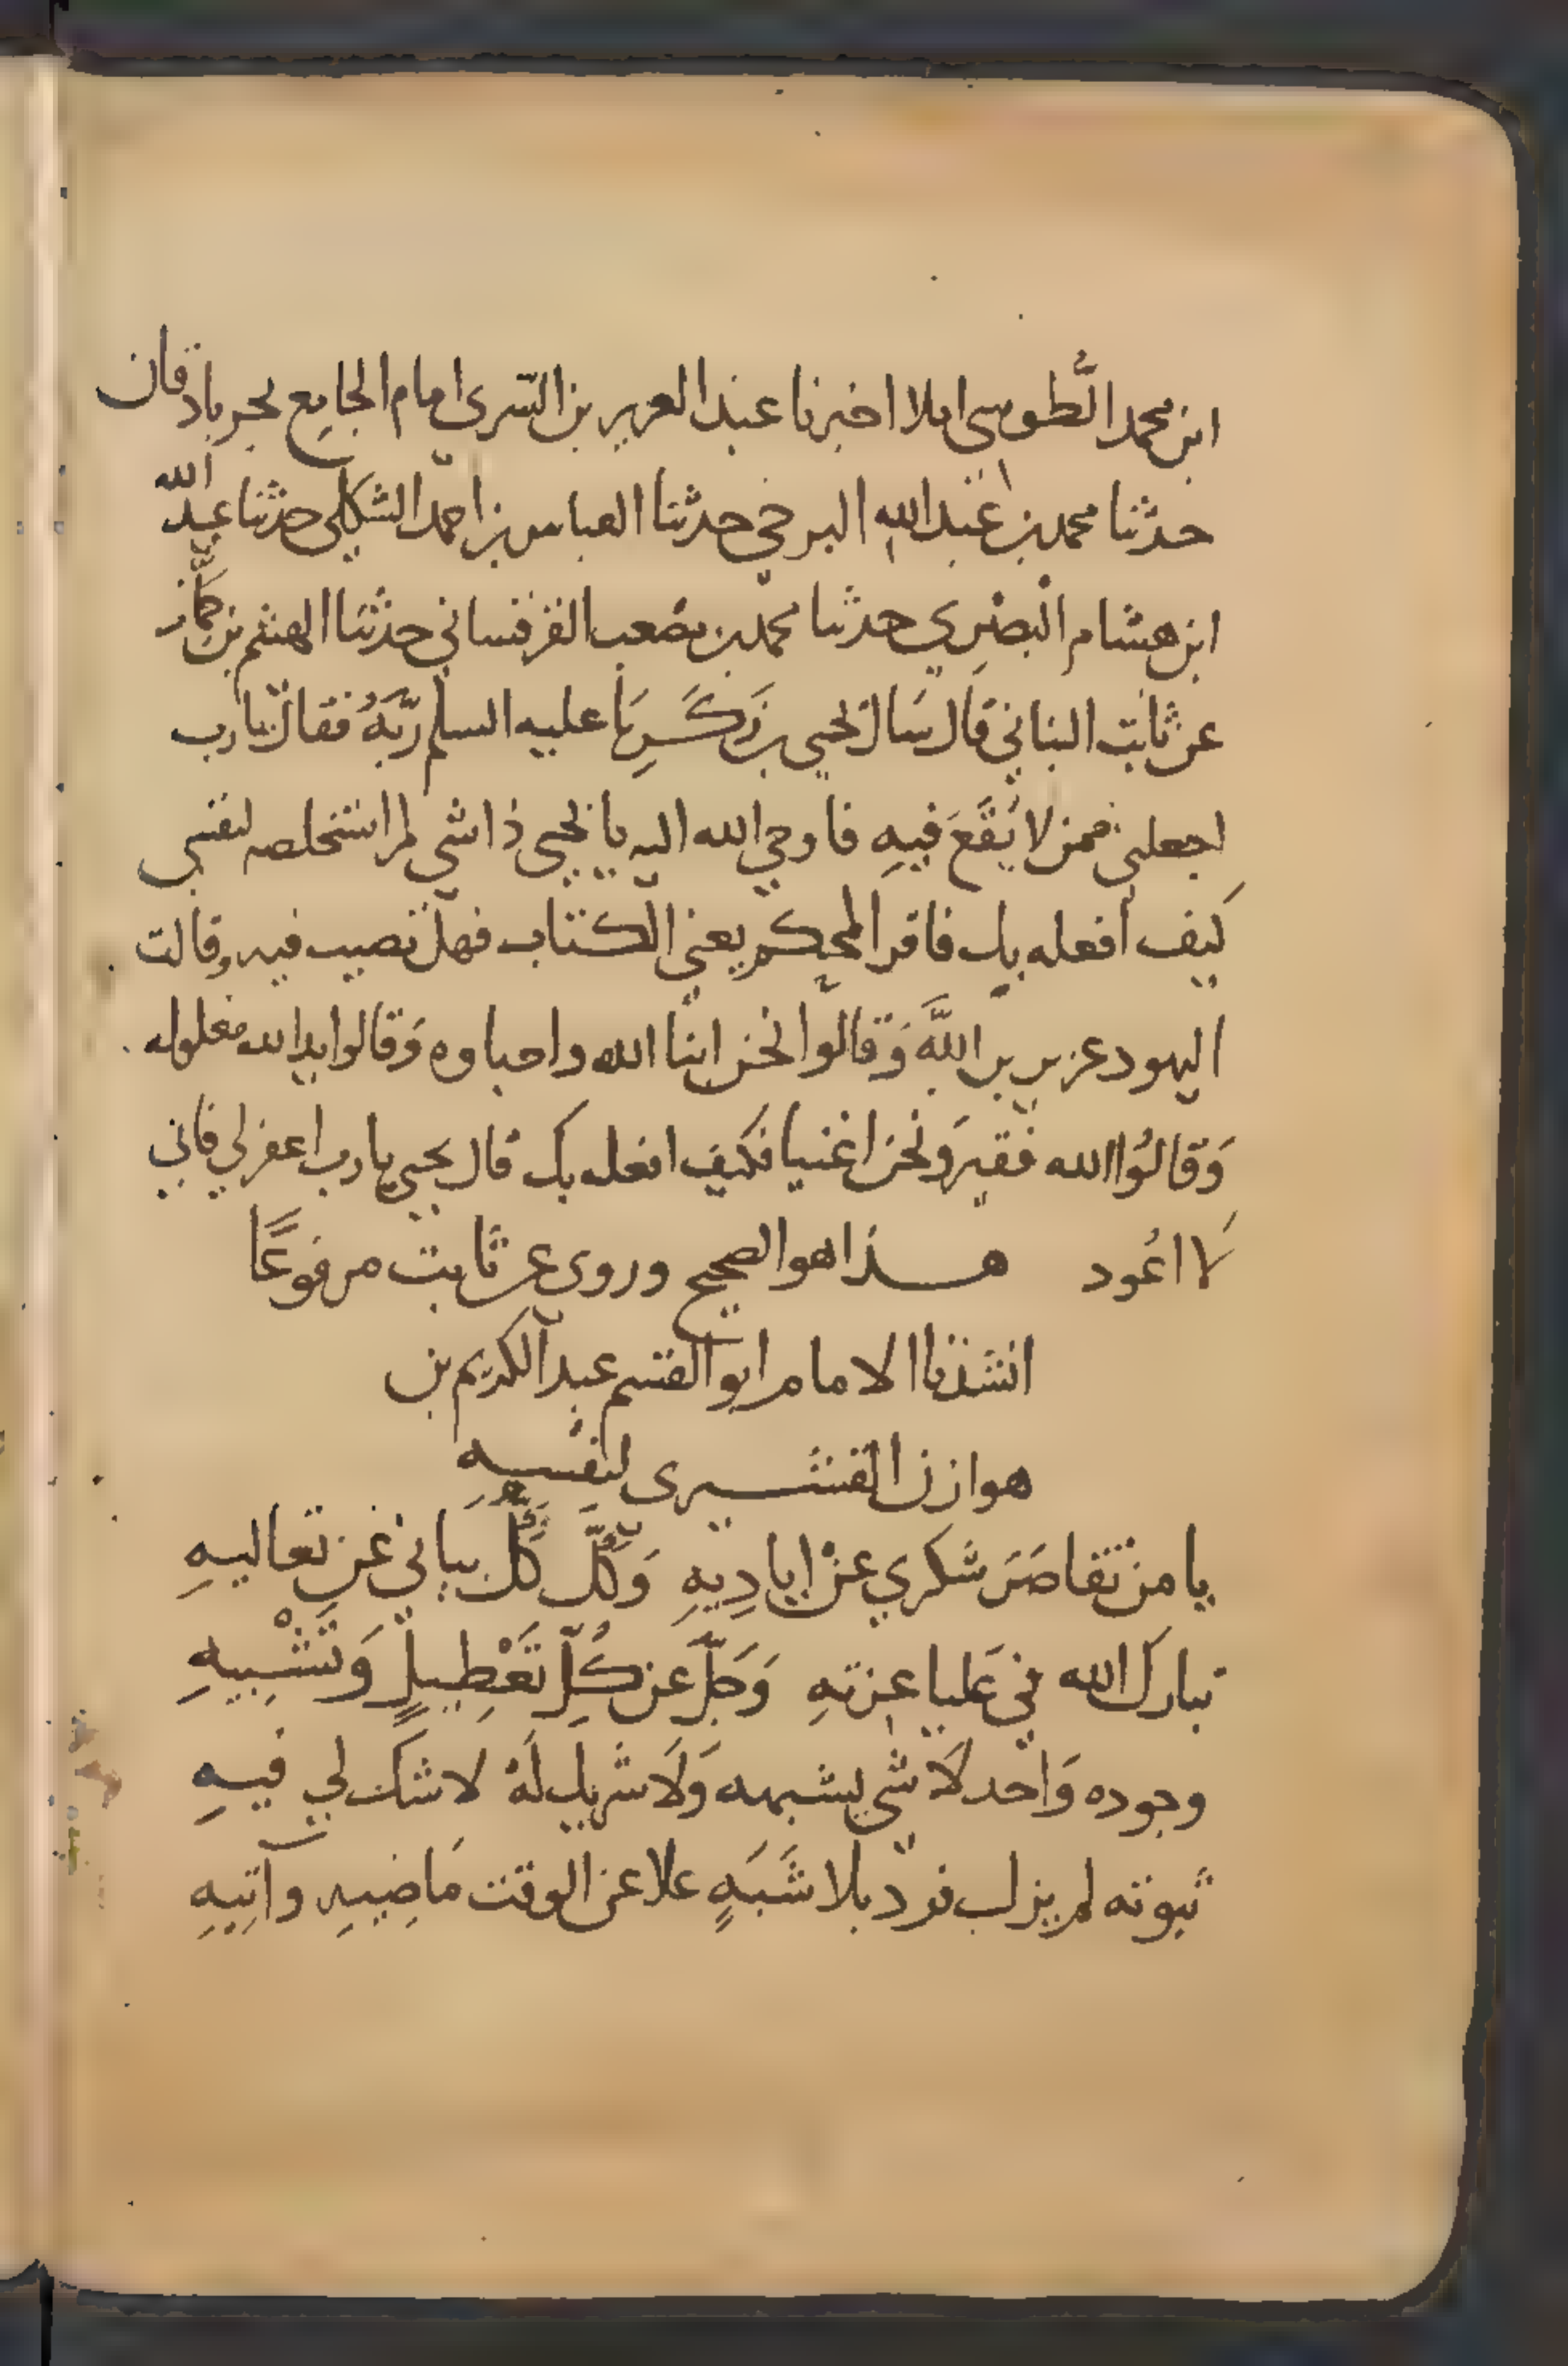 ابن محمد الطوسي املا اخبرنا عبد العزيز بن السرى امام الجامع بجرباذقان
حدثنا محمد بن عبد الله البرجي حدثنا العباس بن احمد الشكلي حدثنا عبد الله
ابن هشام البصري حدثنا محمد بن مصعب القرقساني حدثنا الهيثم بن جماز
عن ثابت البناني قال سَال يحيى بن زكريا عليه السلم رَبَّهُ فقال يا رب
اجعلني ممن لا يُقَع فيهِ فاوحي الله اليه يا يحيى ذا شي لم استخلصه لنفسي
كيف أفعله بك فاقرا المحكم يعني الكتاب فهل تصيب فيه وقالت
اليهود عزير بن اللَّه وَقالوا نحن ابنا الله واحباوه وَقالوا يد الله مغلوله
وَقالوُا الله فقير وَنحن اغنيا فكيف افعله بك قال يحيى يا رب اغفر لي فاني
لَا اعُود هذا هو الصحيح وروى عن ثابت مرفوعًا
انشدنا الامام ابو القسم عبد الكريم بن
هوازن القشيرى لنفسِهِ
يا من تقاصَرَ شكري عنْ اياديهِ وَكَلَّ كُلُّ بيَاني عن تعاليهِ
تبارك الله في عَليا عزتهِ وَجَلَّ عن كُلِّ تَعْطِيلٍ وَتَشْبِيهِ
وجوده وَاحد لَا شي يشبهه وَلَا شريك لَهُ لا شك لي فيهِ
ثبوته لم يزل فرد بلا شَبَهٍ علا عن الوقت مَاضِيهِ وآتِيهِ